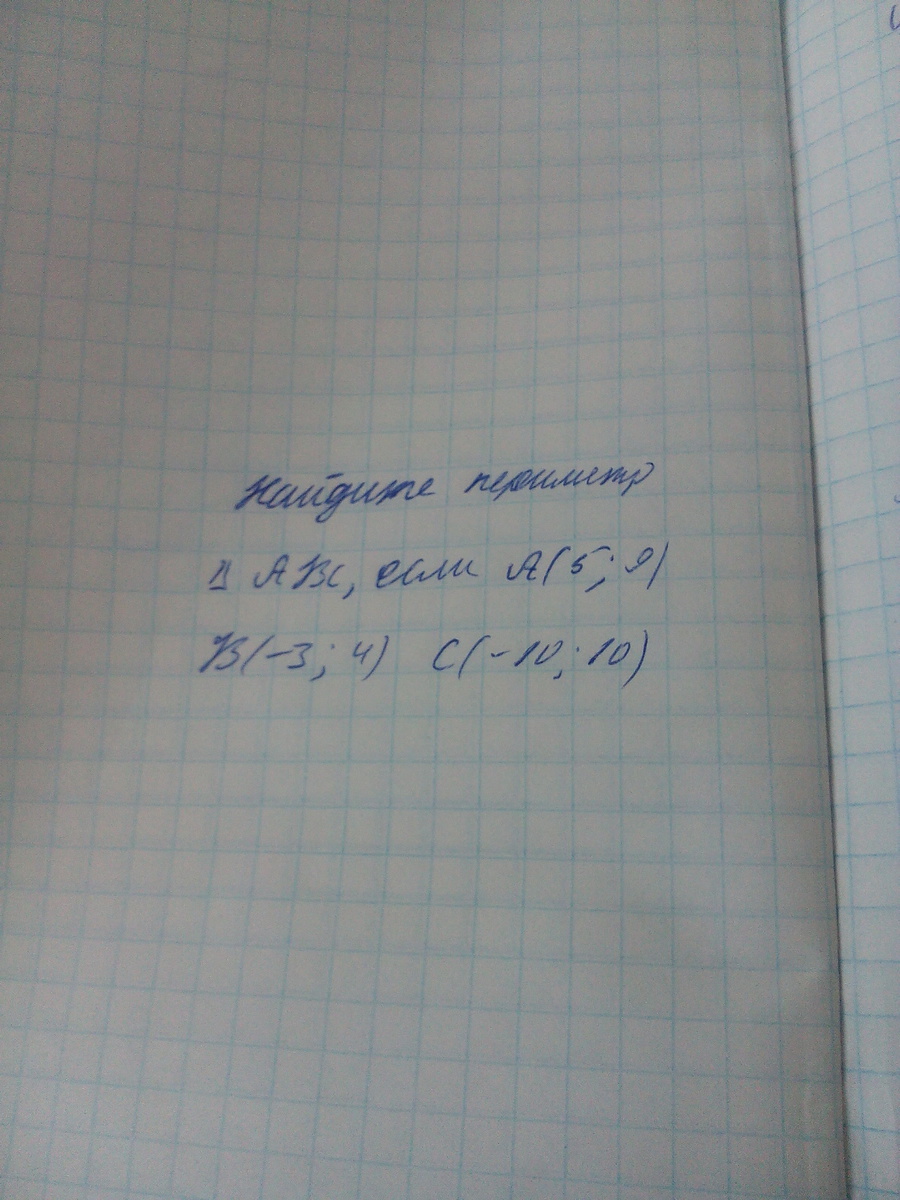 Найдите периметр
Δ ABC, если A(5; 9)
B(-3; 4) C(-10; 10)